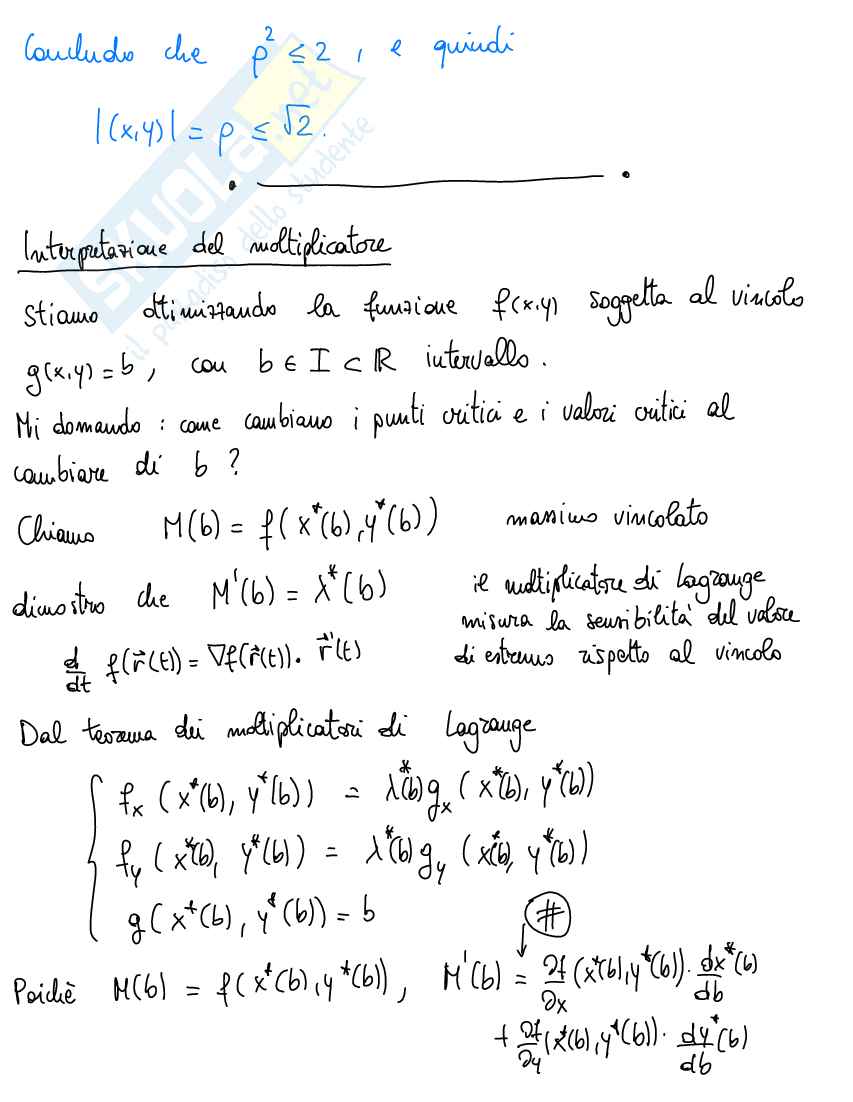 Concludo che ρ² ≤ 2, e quindi
|(x,y)| = ρ ≤ √2.
SKUOLA.net
il paradiso dello studente
Interpretazione del moltiplicatore
Stiamo ottimizzando la funzione f(x,y) soggetta al vincolo
g(x,y) = b, con b ∈ I ⊂ ℝ intervallo.
Mi domando: come cambiano i punti critici e i valori critici al
cambiare di b?
Chiamo M(b) = f(x*(b), y*(b)) massimo vincolato
dimostro che M'(b) = λ*(b) il moltiplicatore di Lagrange
misura la sensibilità del valore
d/dt f(r⃗(t)) = ∇f(r⃗(t)) · r⃗'(t) di estremo rispetto al vincolo
Dal teorema dei moltiplicatori di Lagrange
{ fx (x*(b), y*(b)) = λ*(b) gx (x*(b), y*(b))
fy (x*(b), y*(b)) = λ*(b) gy (x*(b), y*(b))
g(x*(b), y*(b)) = b
#
Poichè M(b) = f(x*(b), y*(b)), M'(b) = ∂f/∂x (x*(b), y*(b)) · dx*/db (b)
+ ∂f/∂y (x*(b), y*(b)) · dy*/db (b)